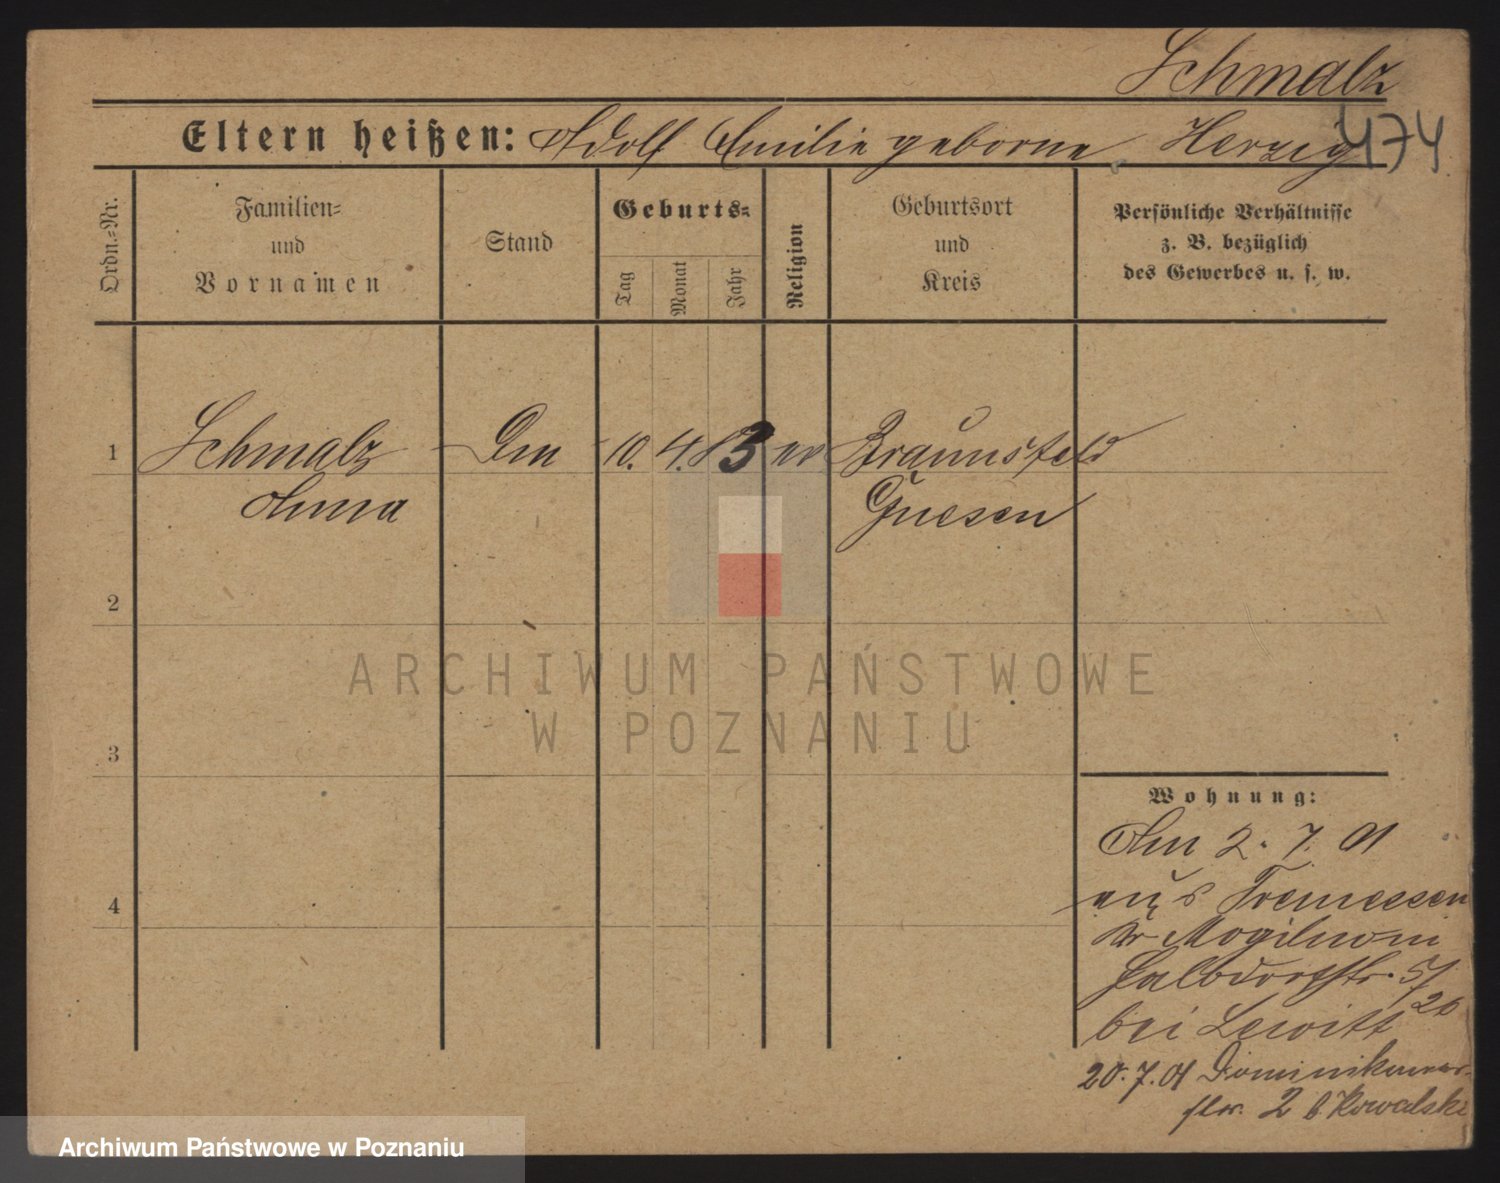 Schmalz
Eltern heißen: Adolf Emilie geborne Herzig 474
Ordn.=Nr.
Familien=
und
Vornamen
Stand
Geburts=
Tag
Monat
Jahr
Religion
Geburtsort
und
Kreis
Persönliche Verhältnisse
z. B. bezüglich
des Gewerbes u. s. w.
1 Schmalz 10. 4. 83 ev Braunsfeld
Anna Gnesen
2
3
4
Wohnung:
Am 2. 7. 01
aus Tremessen
Kr Mogilno
Halbdorfstr. 5/
bei Lewitt
20. 7. 01 Dominikaner-
str. 2 b. Kowalski
ARCHIWUM PAŃSTWOWE
W POZNANIU
Archiwum Państwowe w Poznaniu